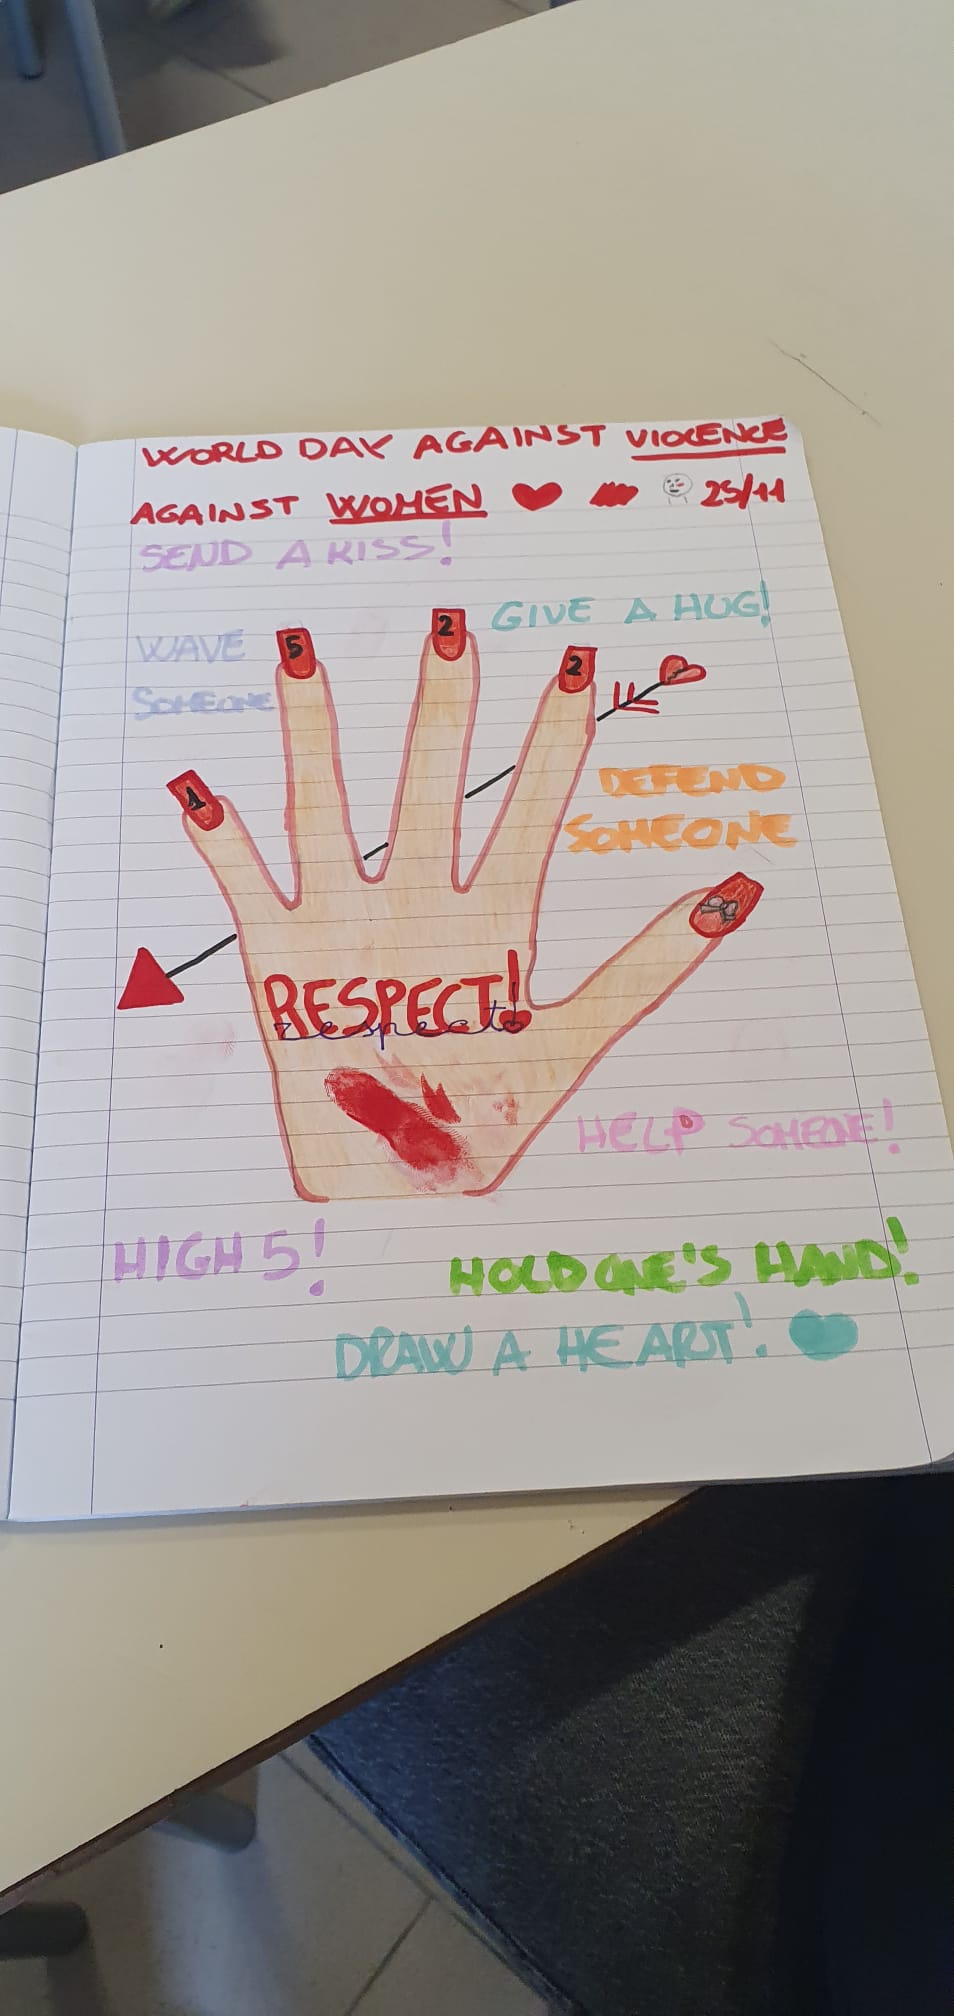 WORLD DAY AGAINST VIOLENCE
AGAINST WOMEN 25/11
SEND A KISS!
GIVE A HUG!
WAVE
SOMEONE
5
2
2
1
DEFEND
SOMEONE
RESPECT!
respect!
HELP SOMEONE!
HIGH 5!
HOLD ONE'S HAND!
DRAW A HEART!